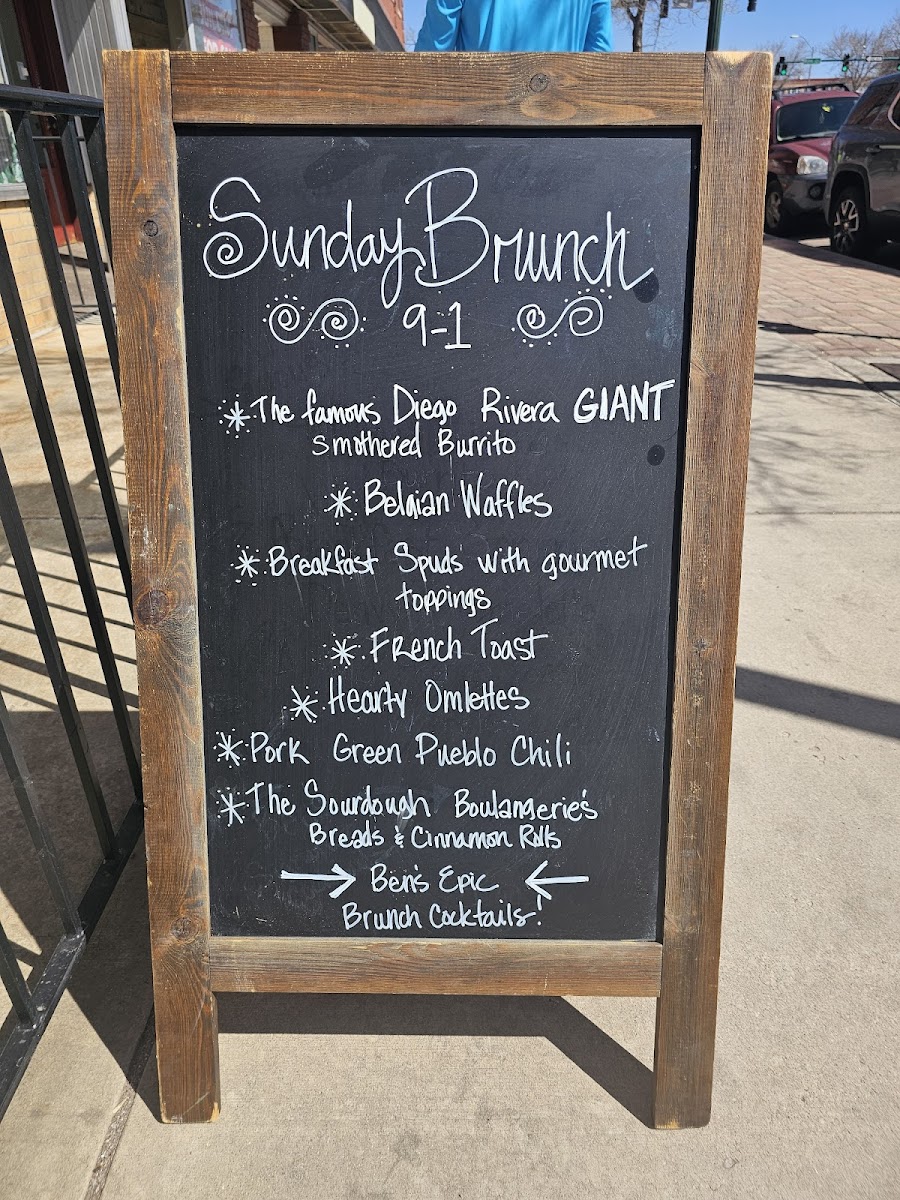 Sunday Brunch
9-1
* The famous Diego Rivera GIANT
smothered Burrito
* Belgian Waffles
* Breakfast Spuds with gourmet
toppings
* French Toast
* Hearty Omlettes
* Pork Green Pueblo Chili
* The Sourdough Boulangerie's
Breads & Cinnamon Rolls
→ Ben's Epic ←
Brunch Cocktails!